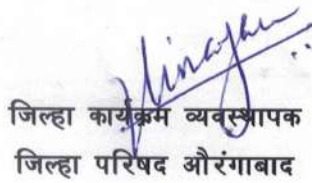 जिल्हा कार्यक्रम व्यवस्थापक
जिल्हा परिषद औरंगाबाद